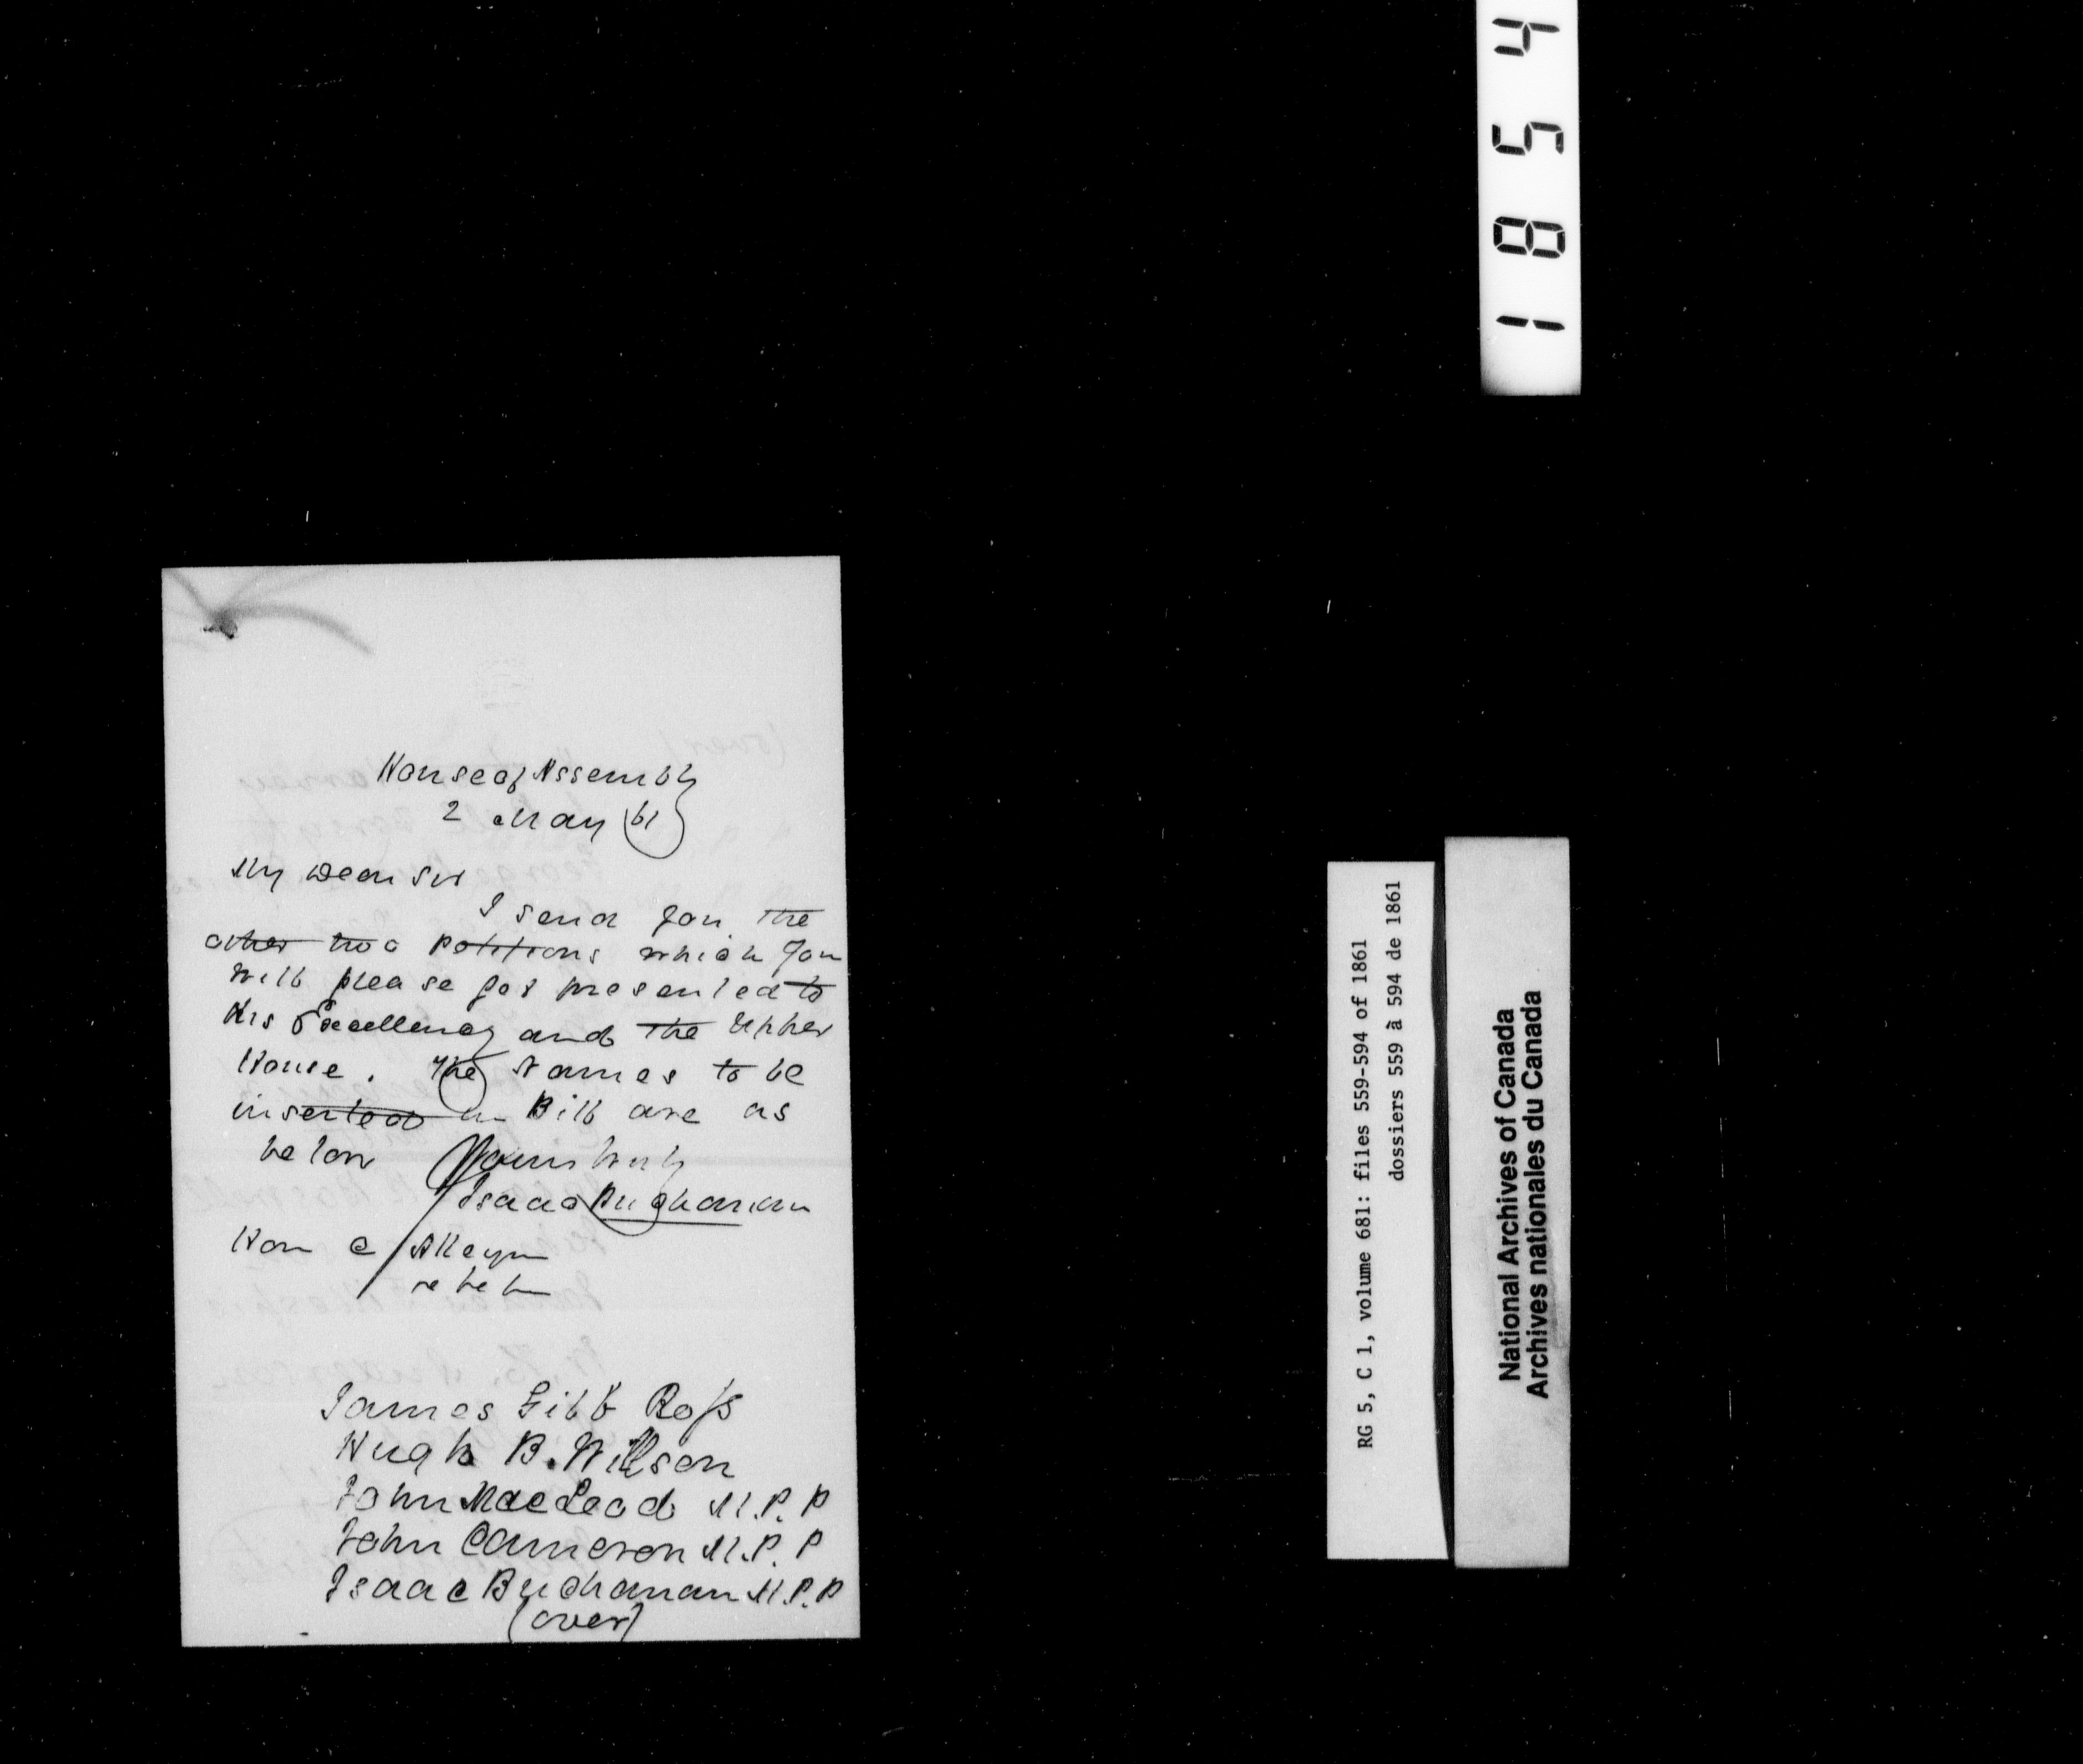 House of Assembly
2 May 61
My Dear Sir
I send you the
other two petitions which you
will please get presented to
His Excellency and the Upper
House. The Names to be
inserted in Bill are as
below Yours truly
Isaac Buchanan
Hon C Alleyn
James Gibb Ross
Hugh B. Willson
John MacLeod M.P.P
John Cameron M.P.P
Isaac Buchanan M.P.P
(over)
1854
RG 5, C 1, volume 681: files 559-594 of 1861
dossiers 559 à 594 de 1861
National Archives of Canada
Archives nationales du Canada